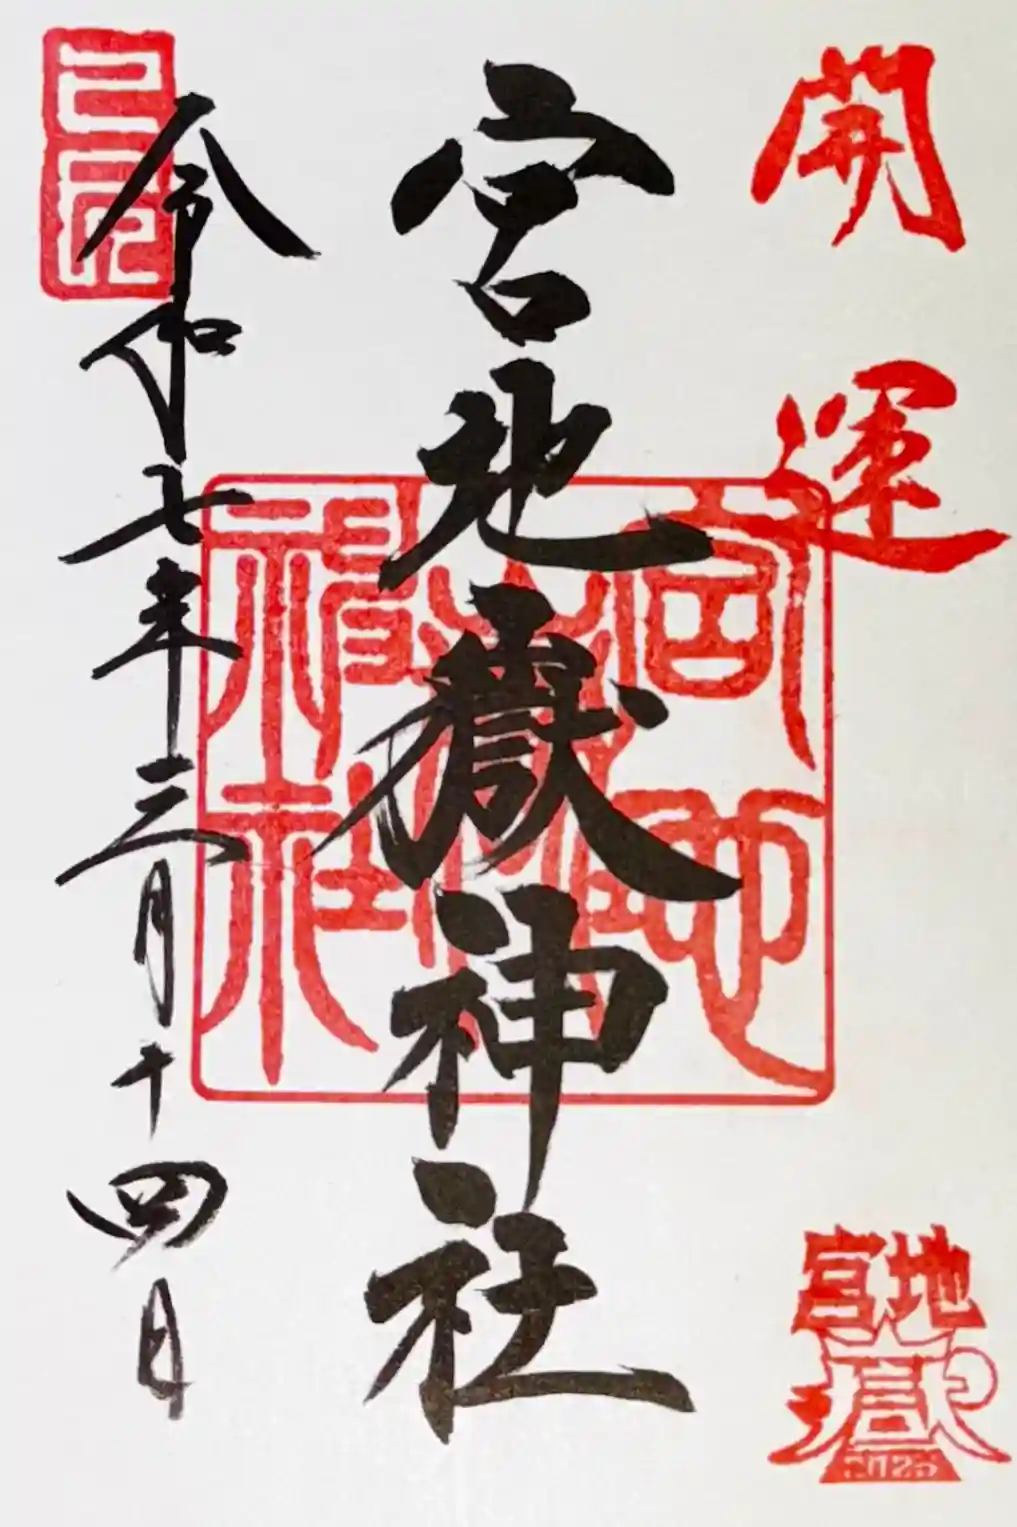 開運
宮地嶽神社
宮地嶽神社
己巳
令和七年三月十四日
宮地
嶽
2025